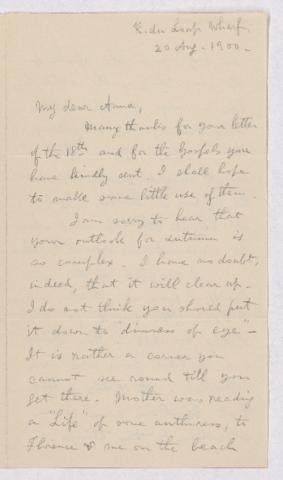 Loop Wharf
20 Aug. 1900.
My dear Anna,
Many thanks for your letter
of the 18th and for the Gospels you
have kindly sent. I shall hope
to make some little use of them.
I am sorry to hear that
your outlook for autumn is
so complex. I have no doubt,
indeed, that it will clear up.
I do not think you should put
it down to "dimness of eye" -
It is rather a corner you
cannot see round till you
get there. Mother was reading
a "Life" of some authoress, to
Florence & me on the beach